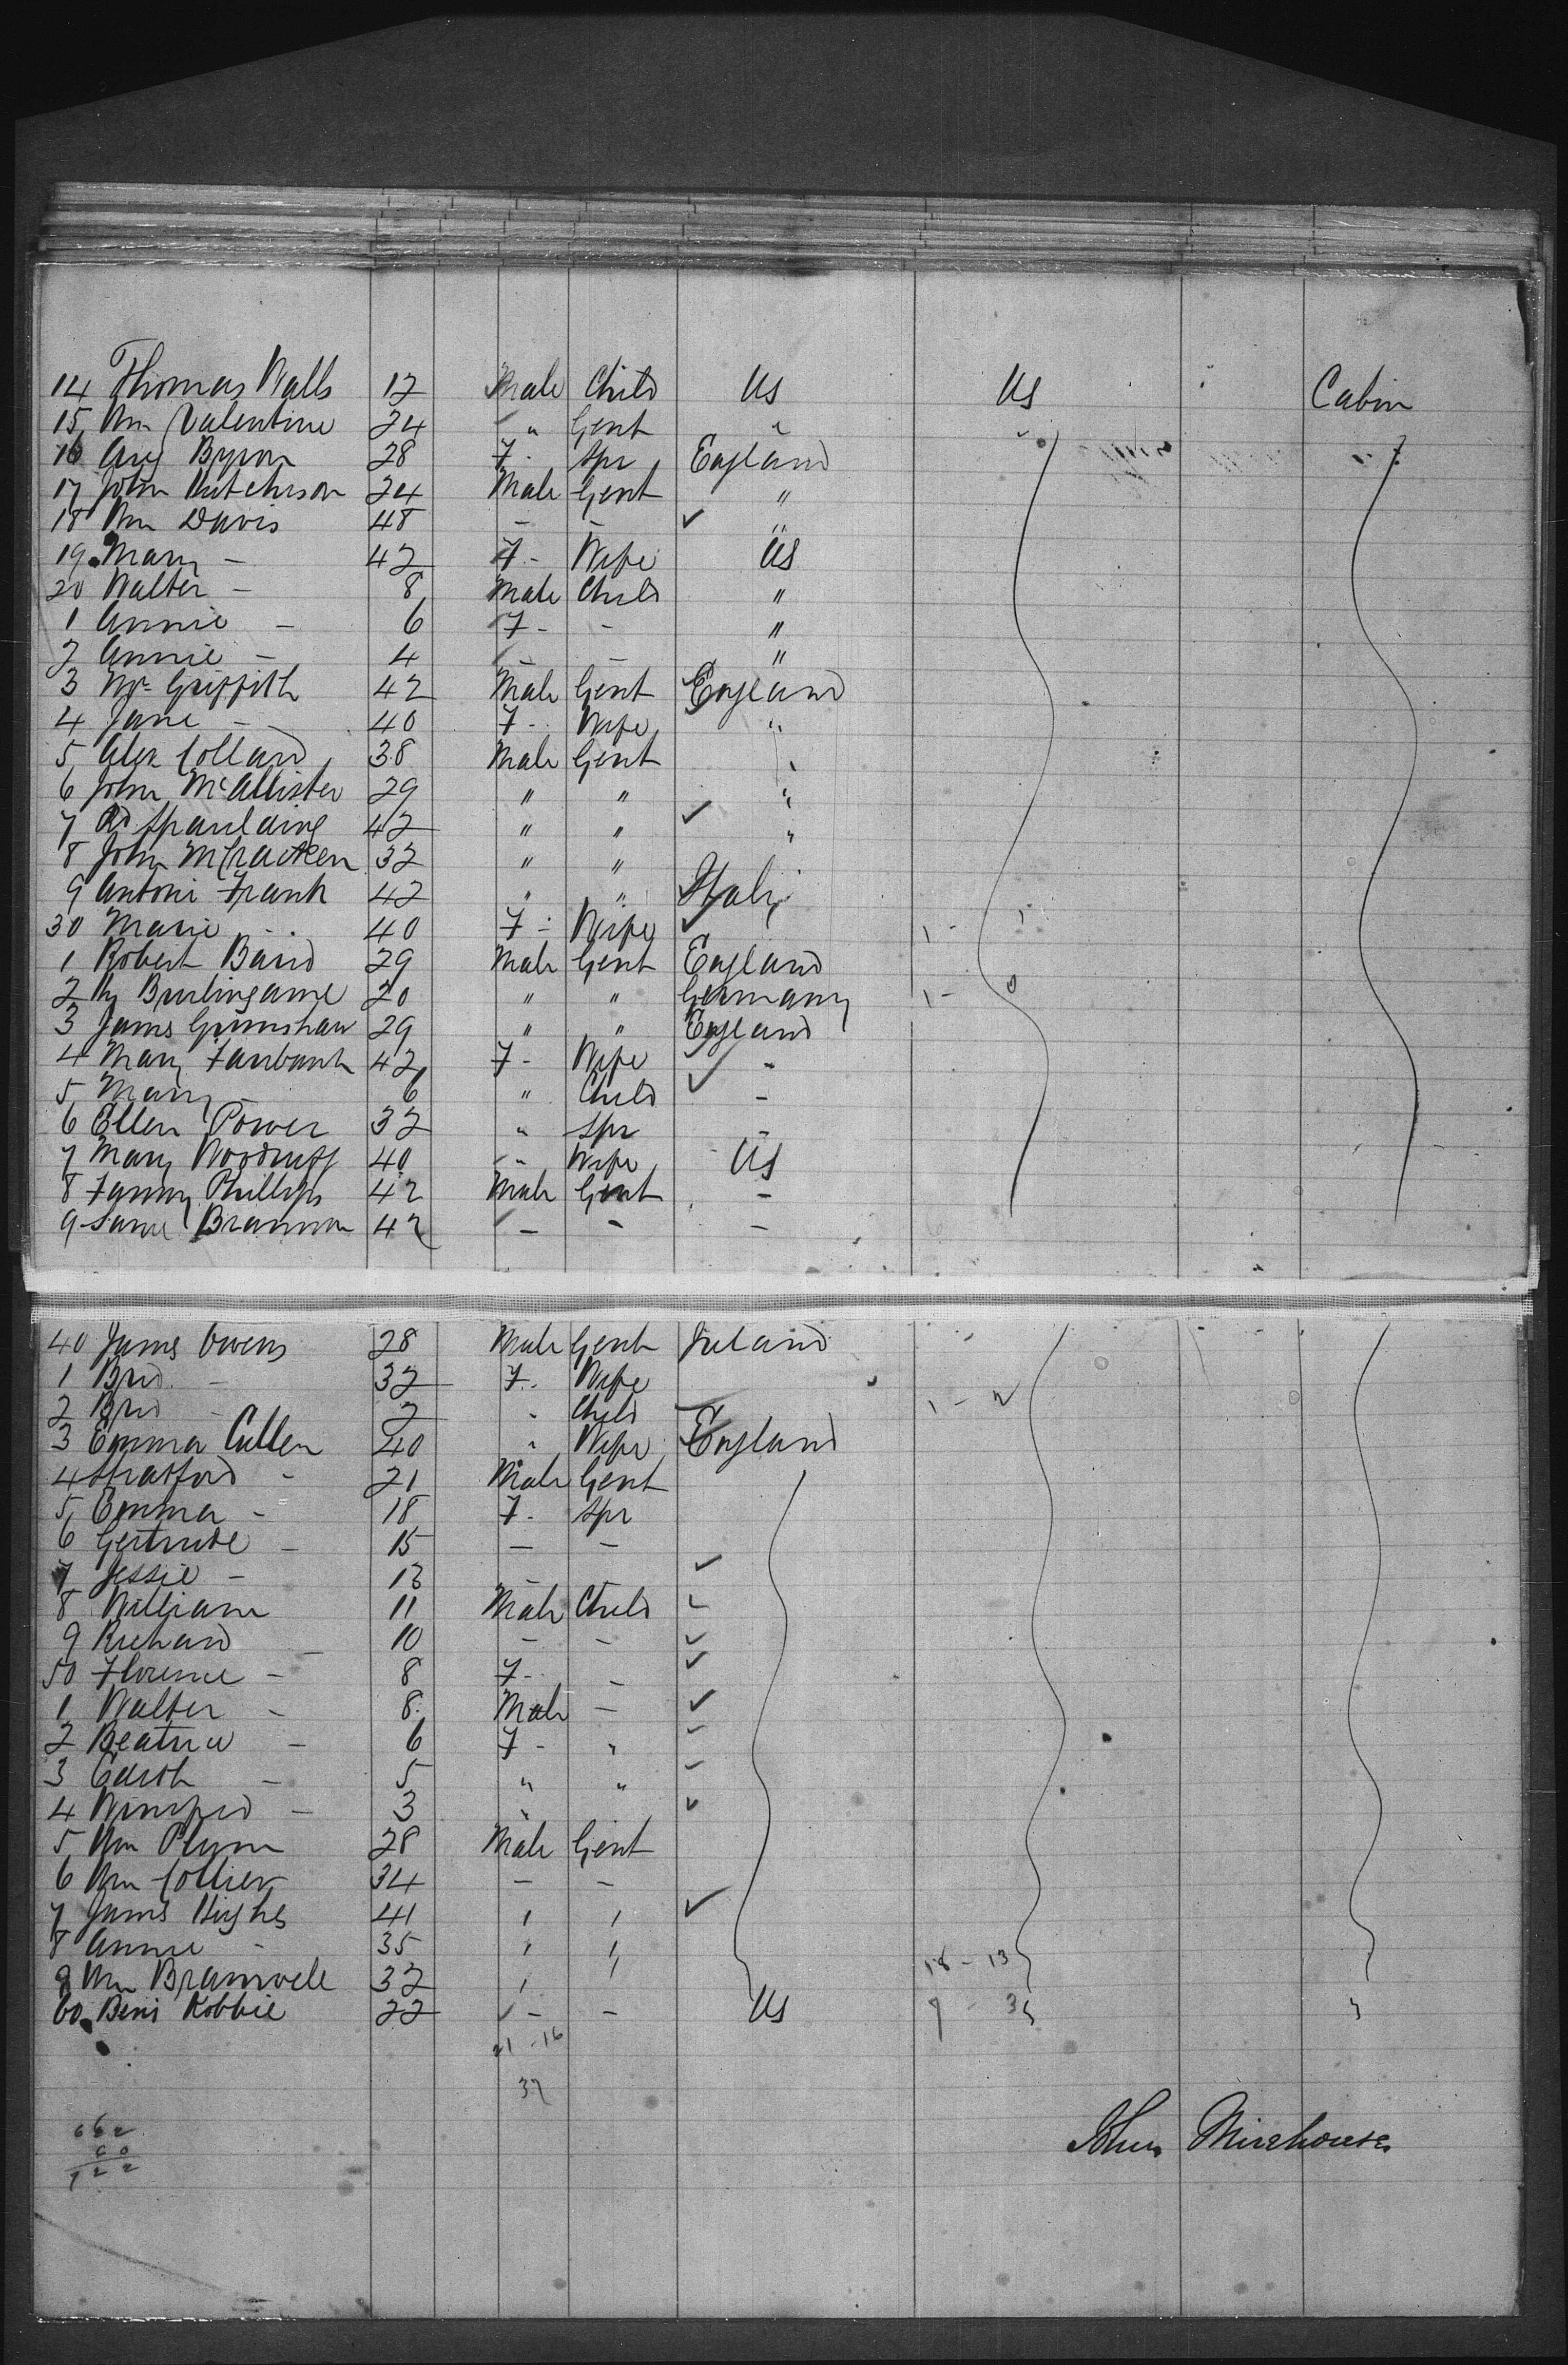 14 Thomas Walls 12 Male Child US US Cabin
15 Wm Valentine 24 " Gent "
16 Aug Byron 28 F - Spr England
17 John Hutchison 24 Male Gent "
18 Wm Davis 48 - - "
19 Mary - 42 F - Wife US
20 Walter - 8 Male Child "
1 Annie - 6 F - - "
2 Annie - 4 - - "
3 Mr Griffith 42 Male Gent England
4 Jane - 40 F - Wife "
5 Alex Collard 38 Male Gent "
6 John McAllister 29 " " "
7 Spaulding 42 " " "
8 John McCracken 32 " "
9 Antoni Frank 42 " " Italy
30 Marie - 40 F - Wife
1 Robert Baird 29 Male Gent England
2 Hy Burlingame 20 " " Germany
3 James Grimshaw 29 " " England
4 Mary Fairbank 42 F - Wife -
5 Mary - 6 " Child -
6 Ellen Power 32 " Spr -
7 Mary Woodruff 40 " Wife US
8 Fanny Phillips 42 Male Gent -
9 Brannon 42 - - -
40 James Owens 28 Male Gent Ireland
1 Brid - 32 F - Wife
2 Brid - 2 " Child
3 Emma Cullen 40 " Wife England
4 Stratford - 21 Male Gent
5 Emma - 18 F - Spr
6 Gertrude - 15 - -
7 Jessie - 13 - -
8 William 11 Male Child
9 Richard - 10 - -
50 Florence - 8 F - -
1 Walter - 8 Male -
2 Beatrice - 6 F - "
3 Edith - 5 " "
4 Winifred - 3 "
5 Wm Plym 28 Male Gent
6 Wm Collier 34 - -
7 James Hughes 41 " "
8 Annie - 35 " " 18 - 13
9 Wm Bramwell 32 " "
60 Benj Robbie 22 - - US 7 - 3
21 - 16
37
662
60
722
John Mirehouse